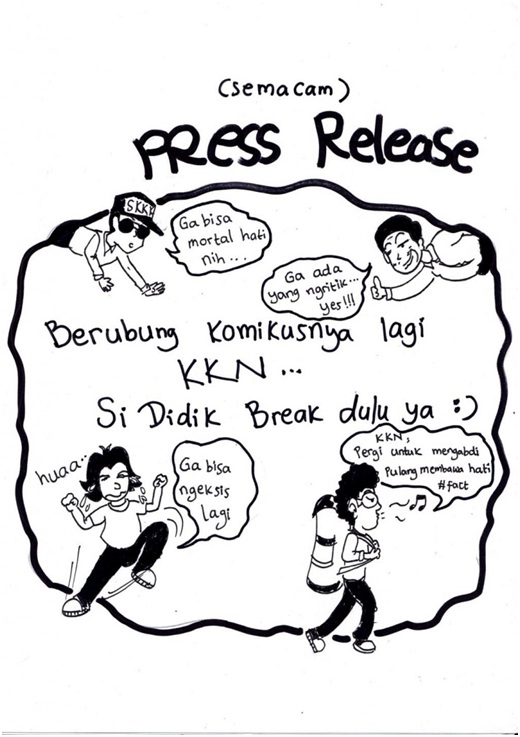 (semacam)
PRESS Release
SKK
Ga bisa
mortal hati
nih...
Ga ada
yang ngritik...
yes!!!
Berubung Komikusnya lagi
KKN...
Si Didik Break dulu ya :)
huaa..
Ga bisa
ngeksis
lagi
KKN,
Pergi untuk mengabdi
Pulang membawa hati
#fact